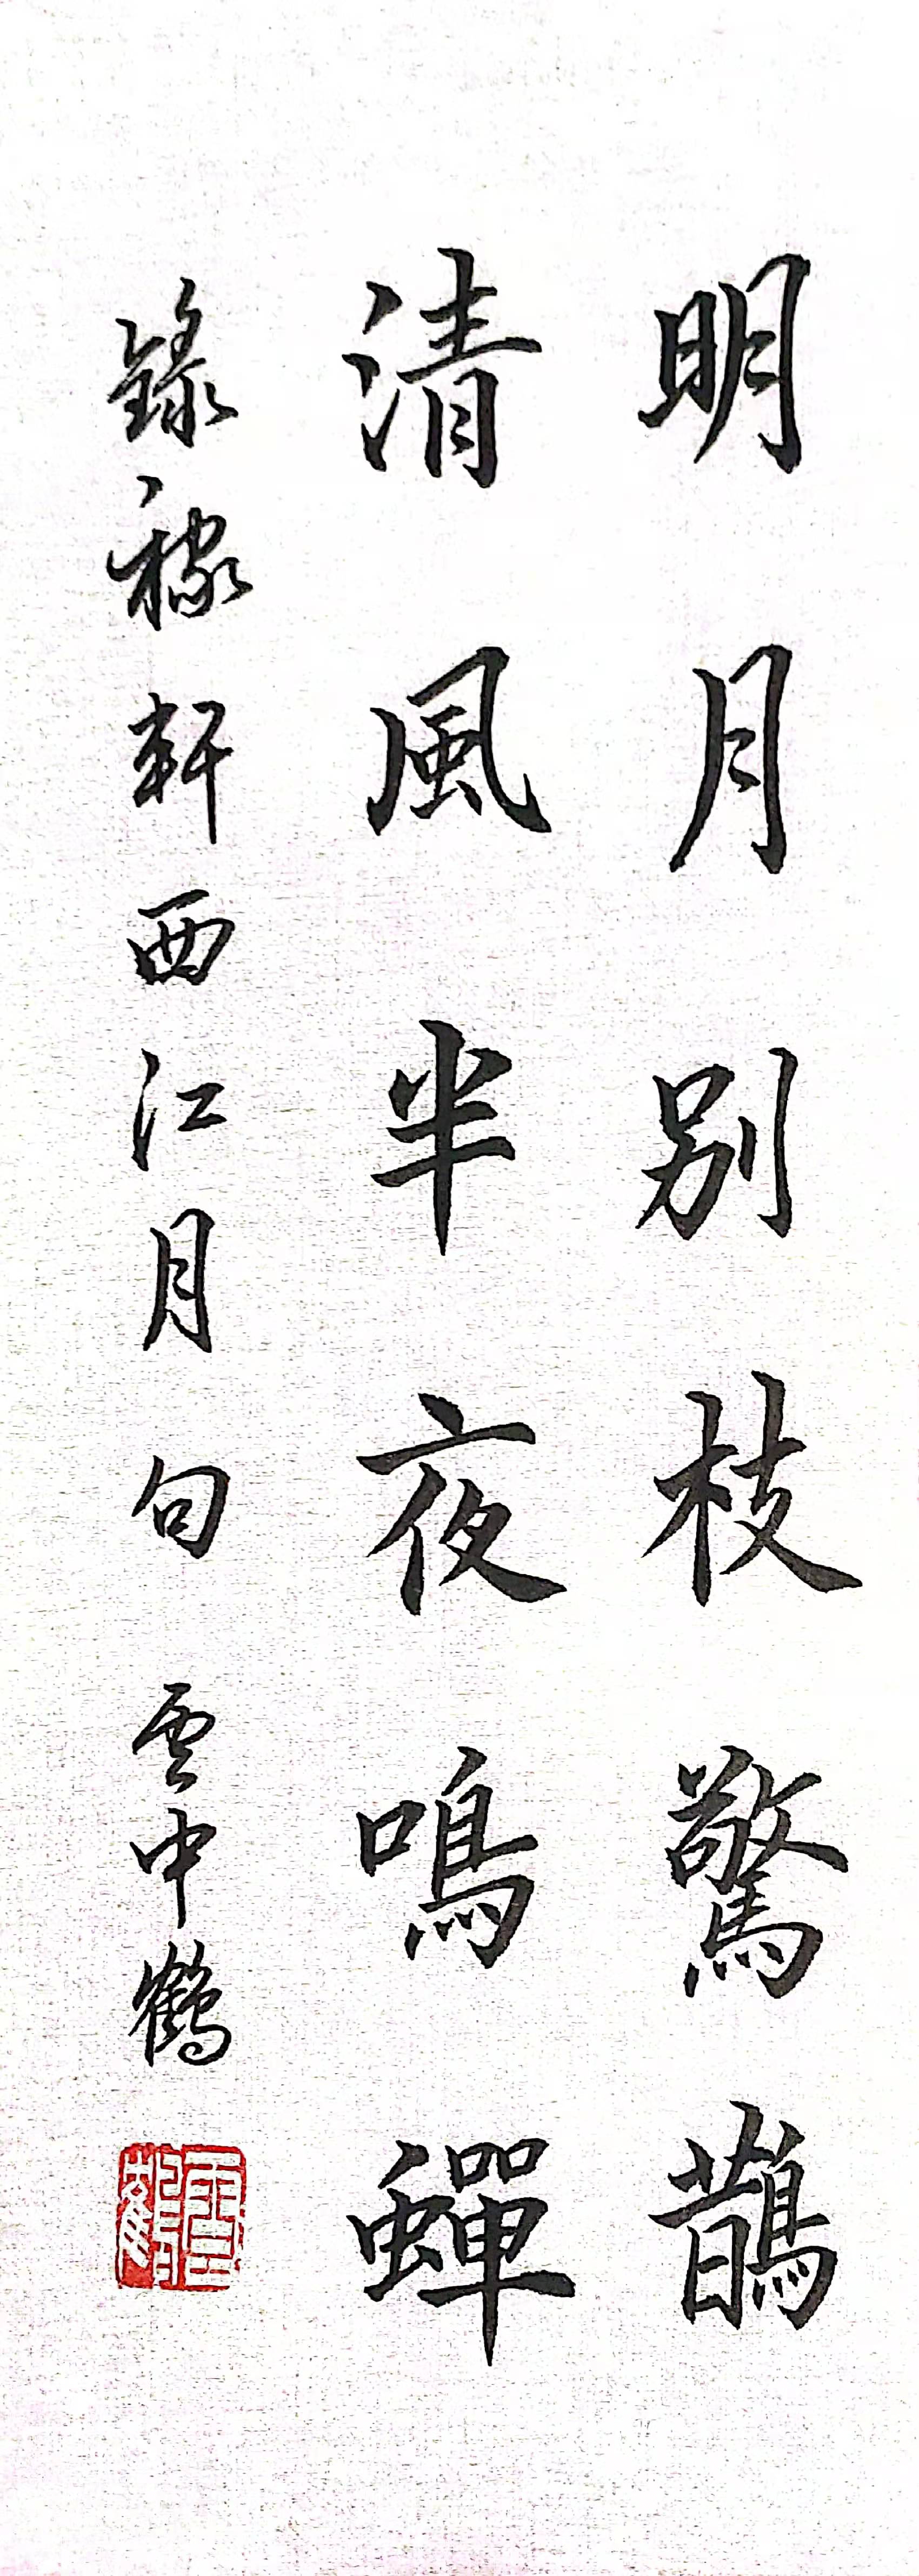 明月别枝驚鵲
清風半夜鳴蟬
錄稼軒西江月句 雲中鶴